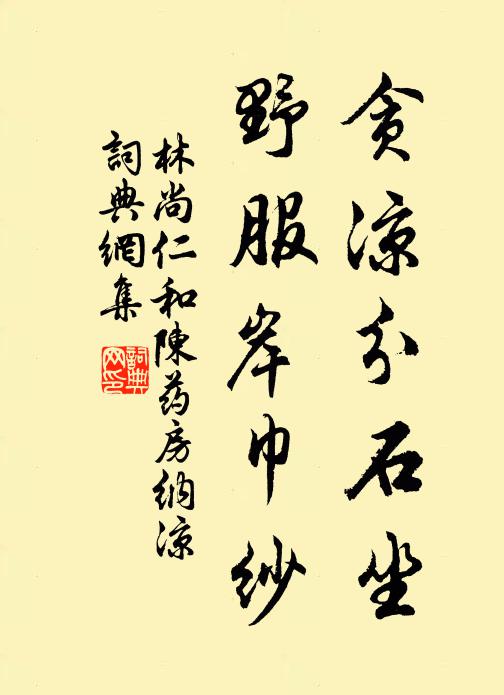 贪凉分石坐
野服岸巾纱
林尚仁和陳药房纳凉
詞典網集
詞典网印